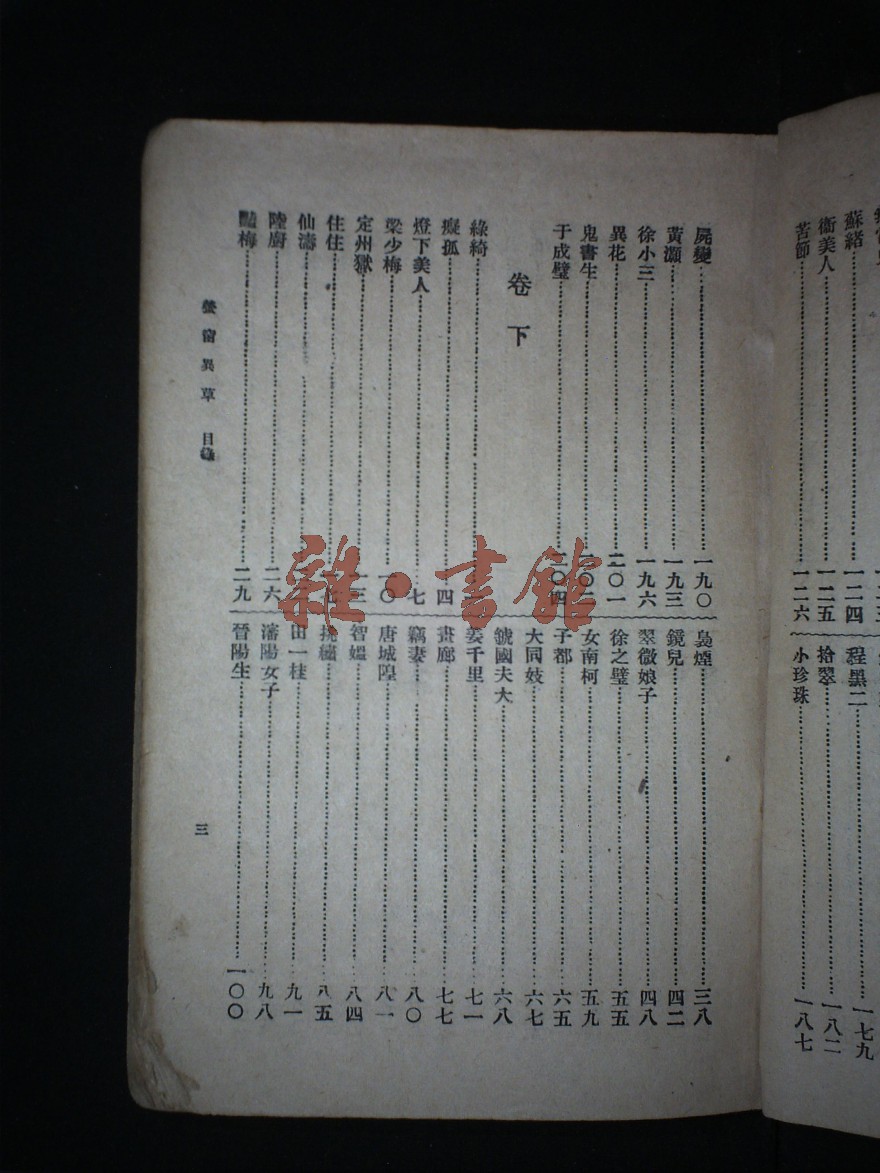 蘇緒……一二四
衞美人……一二五
苦節……一二六
程黑二……一七九
拾翠……一八二
小珍珠……一八七
屍變……一九〇
黃灝……一九三
徐小三……一九六
異花……二〇一
鬼書生
于成璧……二〇四
卷下
綠綺
癡孤……四
燈下美人……七
梁少梅……一〇
定州獄……一三
住住
仙濤
陸廚……二六
豔梅……二九
梟煙……三八
鏡兒……四二
翠微娘子……四八
徐之璧……五五
女南柯……五九
子都……六五
大同妓……六七
虢國夫大……六八
姜千里……七一
畫廊……七七
竊妻……八〇
唐城隍……八一
智媼……八四
挑繡……八五
田一桂……九一
瀋陽女子……九八
晉陽生……一〇〇
螢窗異草 目錄
三
雜·書館